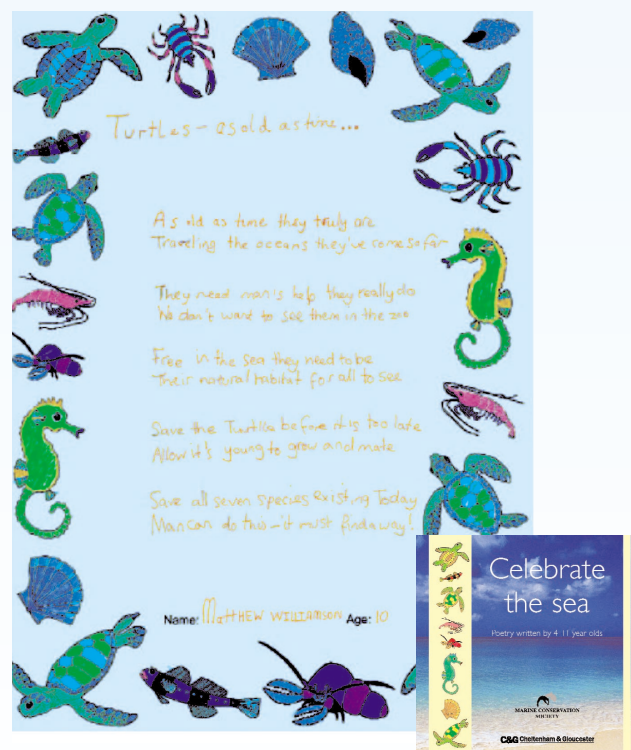 Turtles - as old as time...
As old as time they truly are
Travelling the oceans they've come so far
They need man's help they really do
We don't want to see them in the zoo
Free in the sea they need to be
Their natural habitat for all to see
Save the Turtles before it is too late
Allow it's young to grow and mate
Save all seven species existing Today
Man can do this - it must find a way!
Name: MaTTHEW WILLIAMSON Age: 10
Celebrate
the sea
Poetry written by 4-11 year olds
MARINE CONSERVATION
SOCIETY
C&G Cheltenham & Gloucester